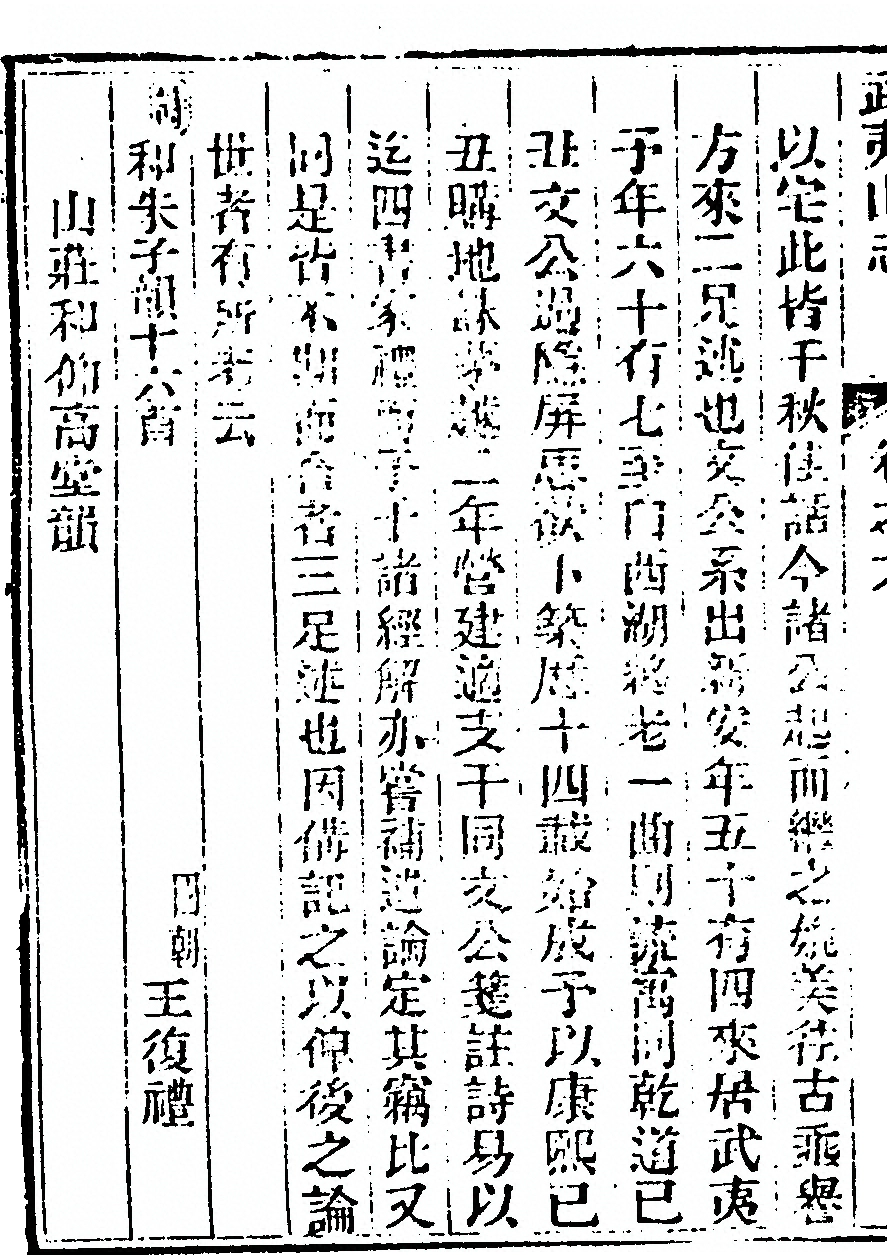 武夷山志 卷之
以宅此皆千秋佳話今諸公起而繼之媲美往古垂譽
方來二足述也文公系出新安年五十有四來居武夷
予年六十有七至自西湖將老一曲同乾道己
丑文公過隱屏思欲卜築歷十四載始成予以康熙己
丑購地誅茅越二年營建適支干同文公箋註詩易以
迄四書家禮而予十諸經解亦嘗補造論定其竊比又
同是皆不期而合者三足述也因備記之以俾後之論
世者有所考云
和朱子韻十六首 國朝 王復禮
山莊和仰高堂韻